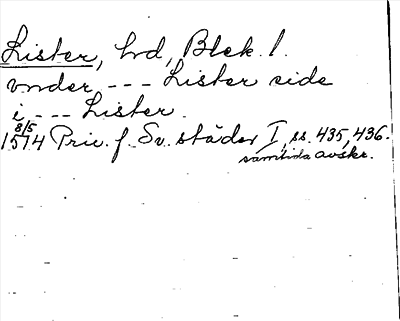 Lister, hd, Blek. l.
vnder --- Lister side
i --- Lister.
8/5
1574 Priv. f. Sv. städer I, ss. 435, 436.
samtida avskr.